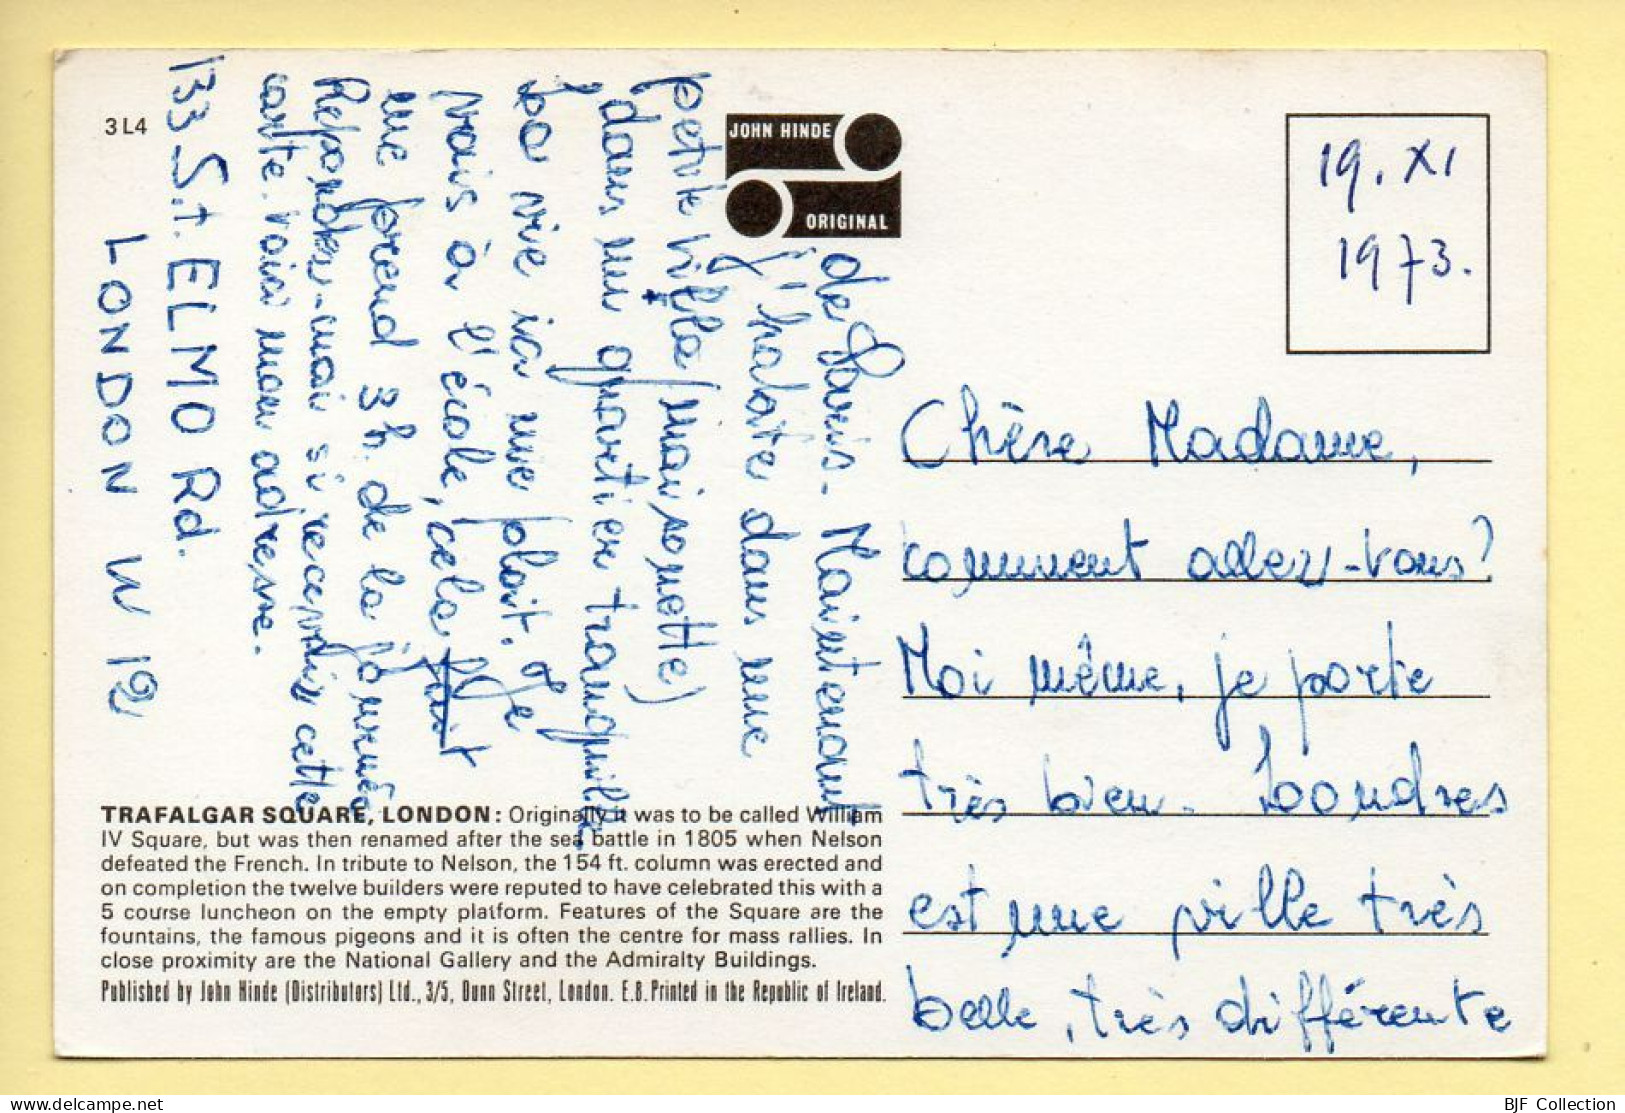 3L4
JOHN HINDE
ORIGINAL
19. XI
1973.
Chère Madame,
comment allez-vous?
Moi même, je porte
très bien. Londres
est une ville très
belle, très différente
de Paris. Maintenant
j'habite dans une
petite ville (maisonette)
dans un quartier tranquille
La vie ici me plait. Je
vais à l'école, cela fait
me prend 3h. de la journée
Repondez-moi si recevrez cette
carte. Voici mon adresse.
133 St. ELMO Rd.
LONDON W 12
TRAFALGAR SQUARE, LONDON: Originally it was to be called William
IV Square, but was then renamed after the sea battle in 1805 when Nelson
defeated the French. In tribute to Nelson, the 154 ft. column was erected and
on completion the twelve builders were reputed to have celebrated this with a
5 course luncheon on the empty platform. Features of the Square are the
fountains, the famous pigeons and it is often the centre for mass rallies. In
close proximity are the National Gallery and the Admiralty Buildings.
Published by John Hinde (Distributors) Ltd., 3/5, Dunn Street, London. E.8. Printed in the Republic of Ireland.
BJF Collection
delcampe.net